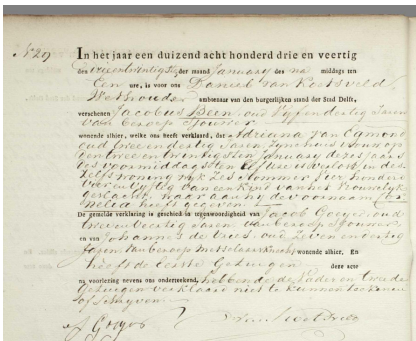 N 29
In het jaar een duizend acht honderd drie en veertig
den vierentwintigste der maand January des na middags ten
Een ure, is voor ons Daniel van Koetsveld
Wethouder ambtenaar van den burgerlijken stand der Stad Delft,
verschenen Jacobus Been oud Vijfendertig Jaren
van beroep Sjouwer
wonende alhier, welke ons heeft verklaard, dat Adriana van Egmond
oud Jaren Zijne huisvrouw op
den January dezes Jaars
des voormiddags ten ure is verlost in des
zelfs woning Wijk Zes Nommer Vier honderd
vier en vijftig van een Kind van het Vrouwelijk
geslacht, waar aan hij de voornaam Cor
nelia heeft gegeven
De gemelde verklaring is geschied in tegenwoordigheid van Jacob oud
tweeenveertig Jaren van beroep Sjouwer
en van Johannes de Vries oud Zeven en dertig
Jaren van beroep Metselaars Knecht wonende alhier. En
heeft de eerste Getuigen deze acte
na voorlezing nevens ons onderteekend, hebbende de Vader en tweede
Getuigen verklaard niet te kunnen teekenen
of Schrijven